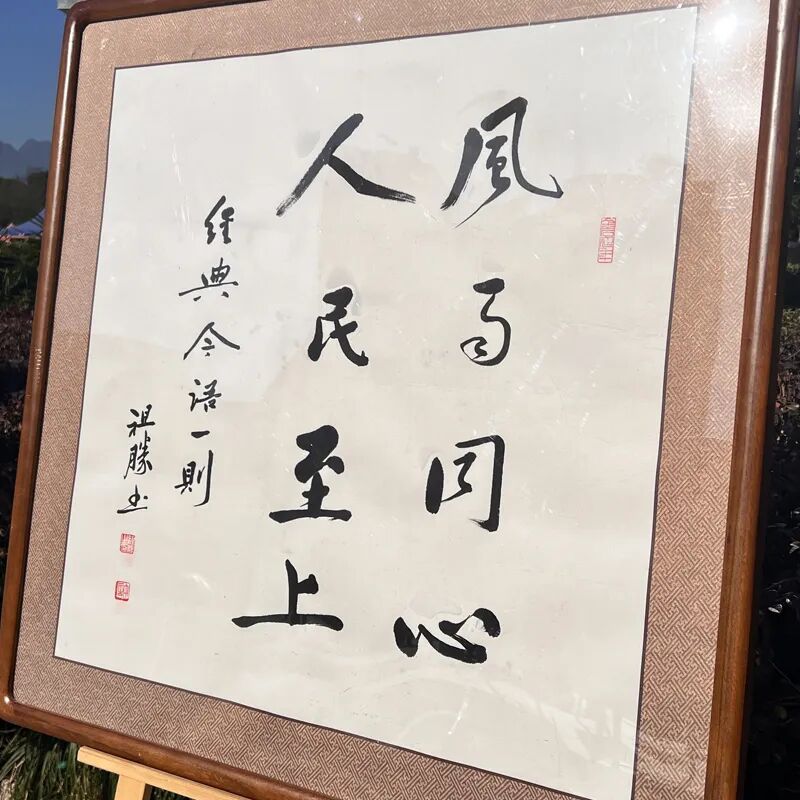 風雨同心
人民至上
经典今语一則
祖勝书